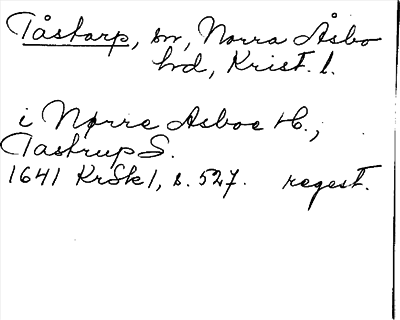 Tåstarp, sn, Norra Åsbo
hd, Krist. l.
i Nørre Asboe H.,
Tastrup S.
1641 KrSk 1, s. 527. regest.